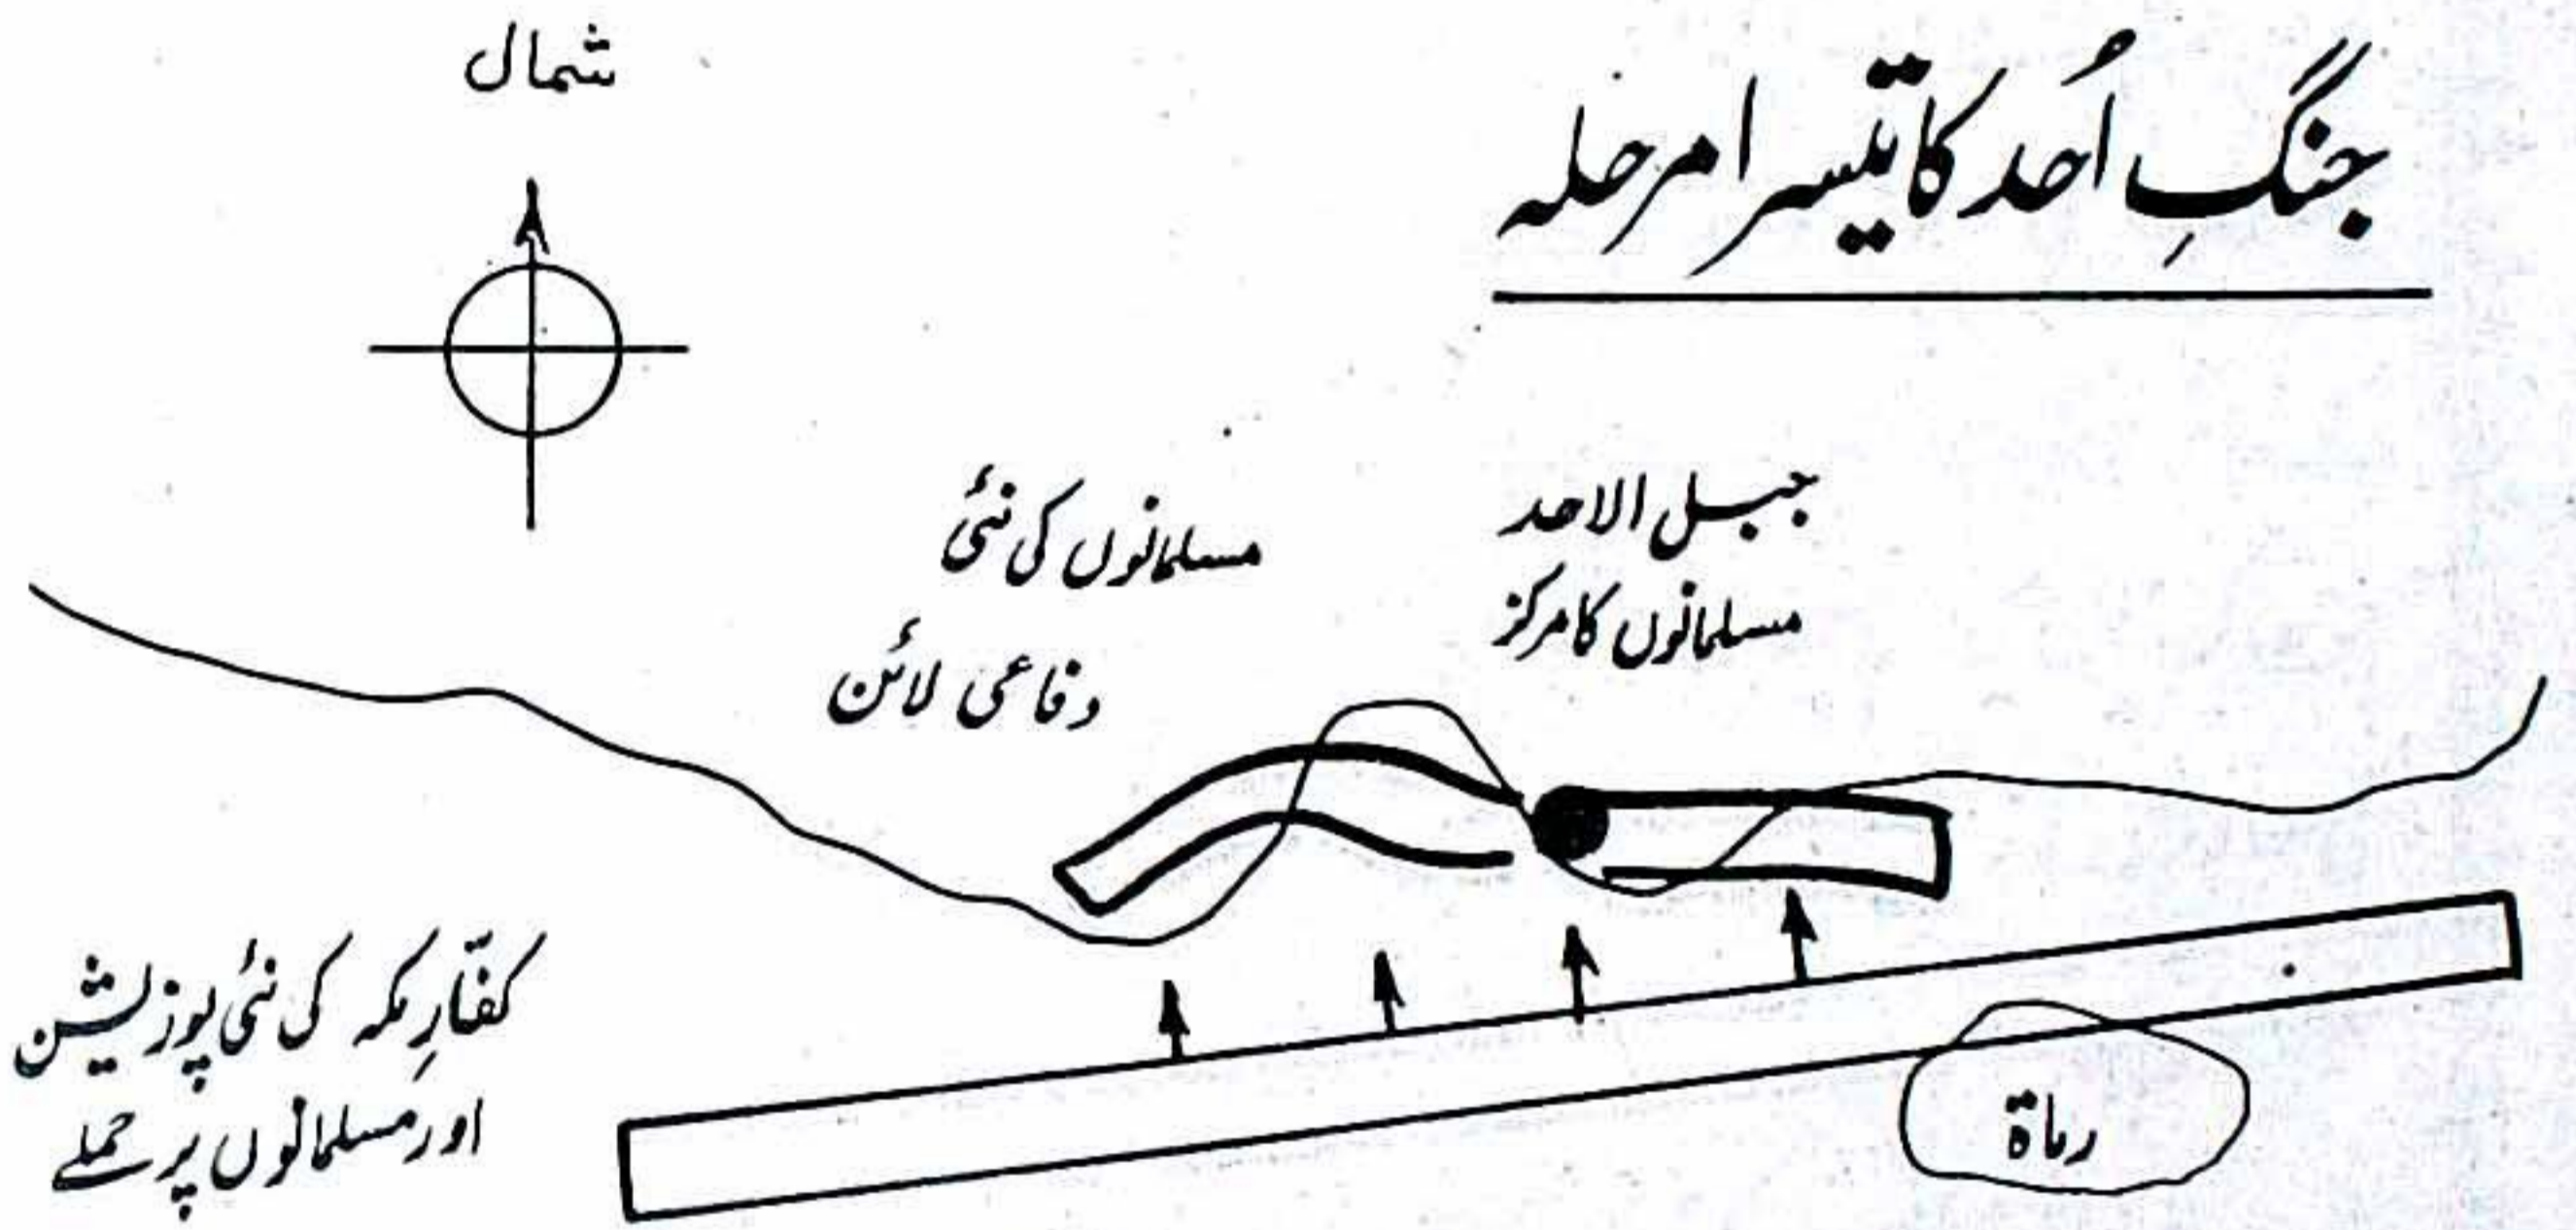 جنگِ اُحد کا تیسرا مرحلہ
شمال
جبل الاحد
مسلمانوں کا مرکز
مسلمانوں کی نئی
دفاعی لائن
کفّارِ مکہ کی نئی پوزیشن
اور مسلمانوں پر حملے
رماة